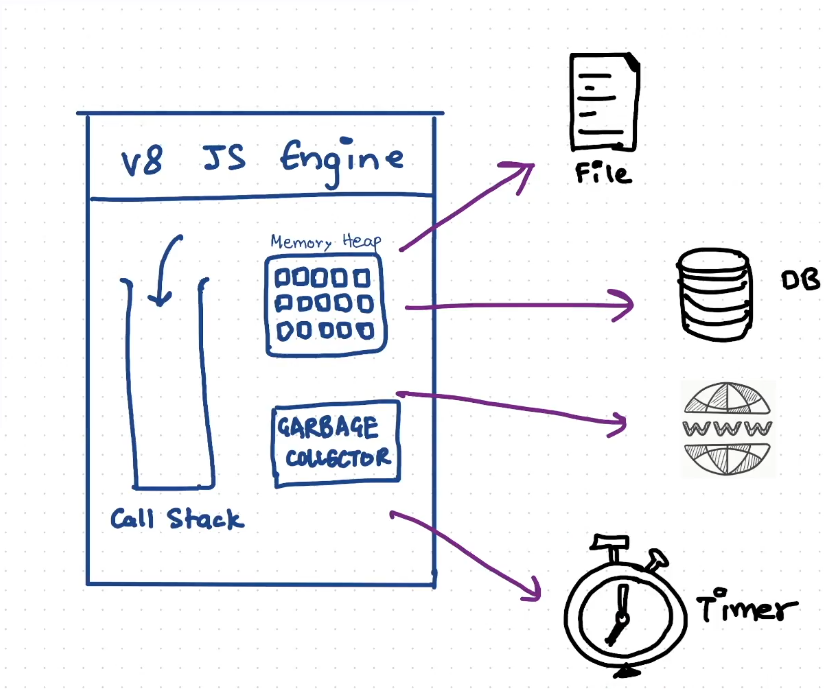 V8 JS Engine
Memory Heap
GARBAGE
COLLECTOR
Call Stack
File
DB
WWW
Timer